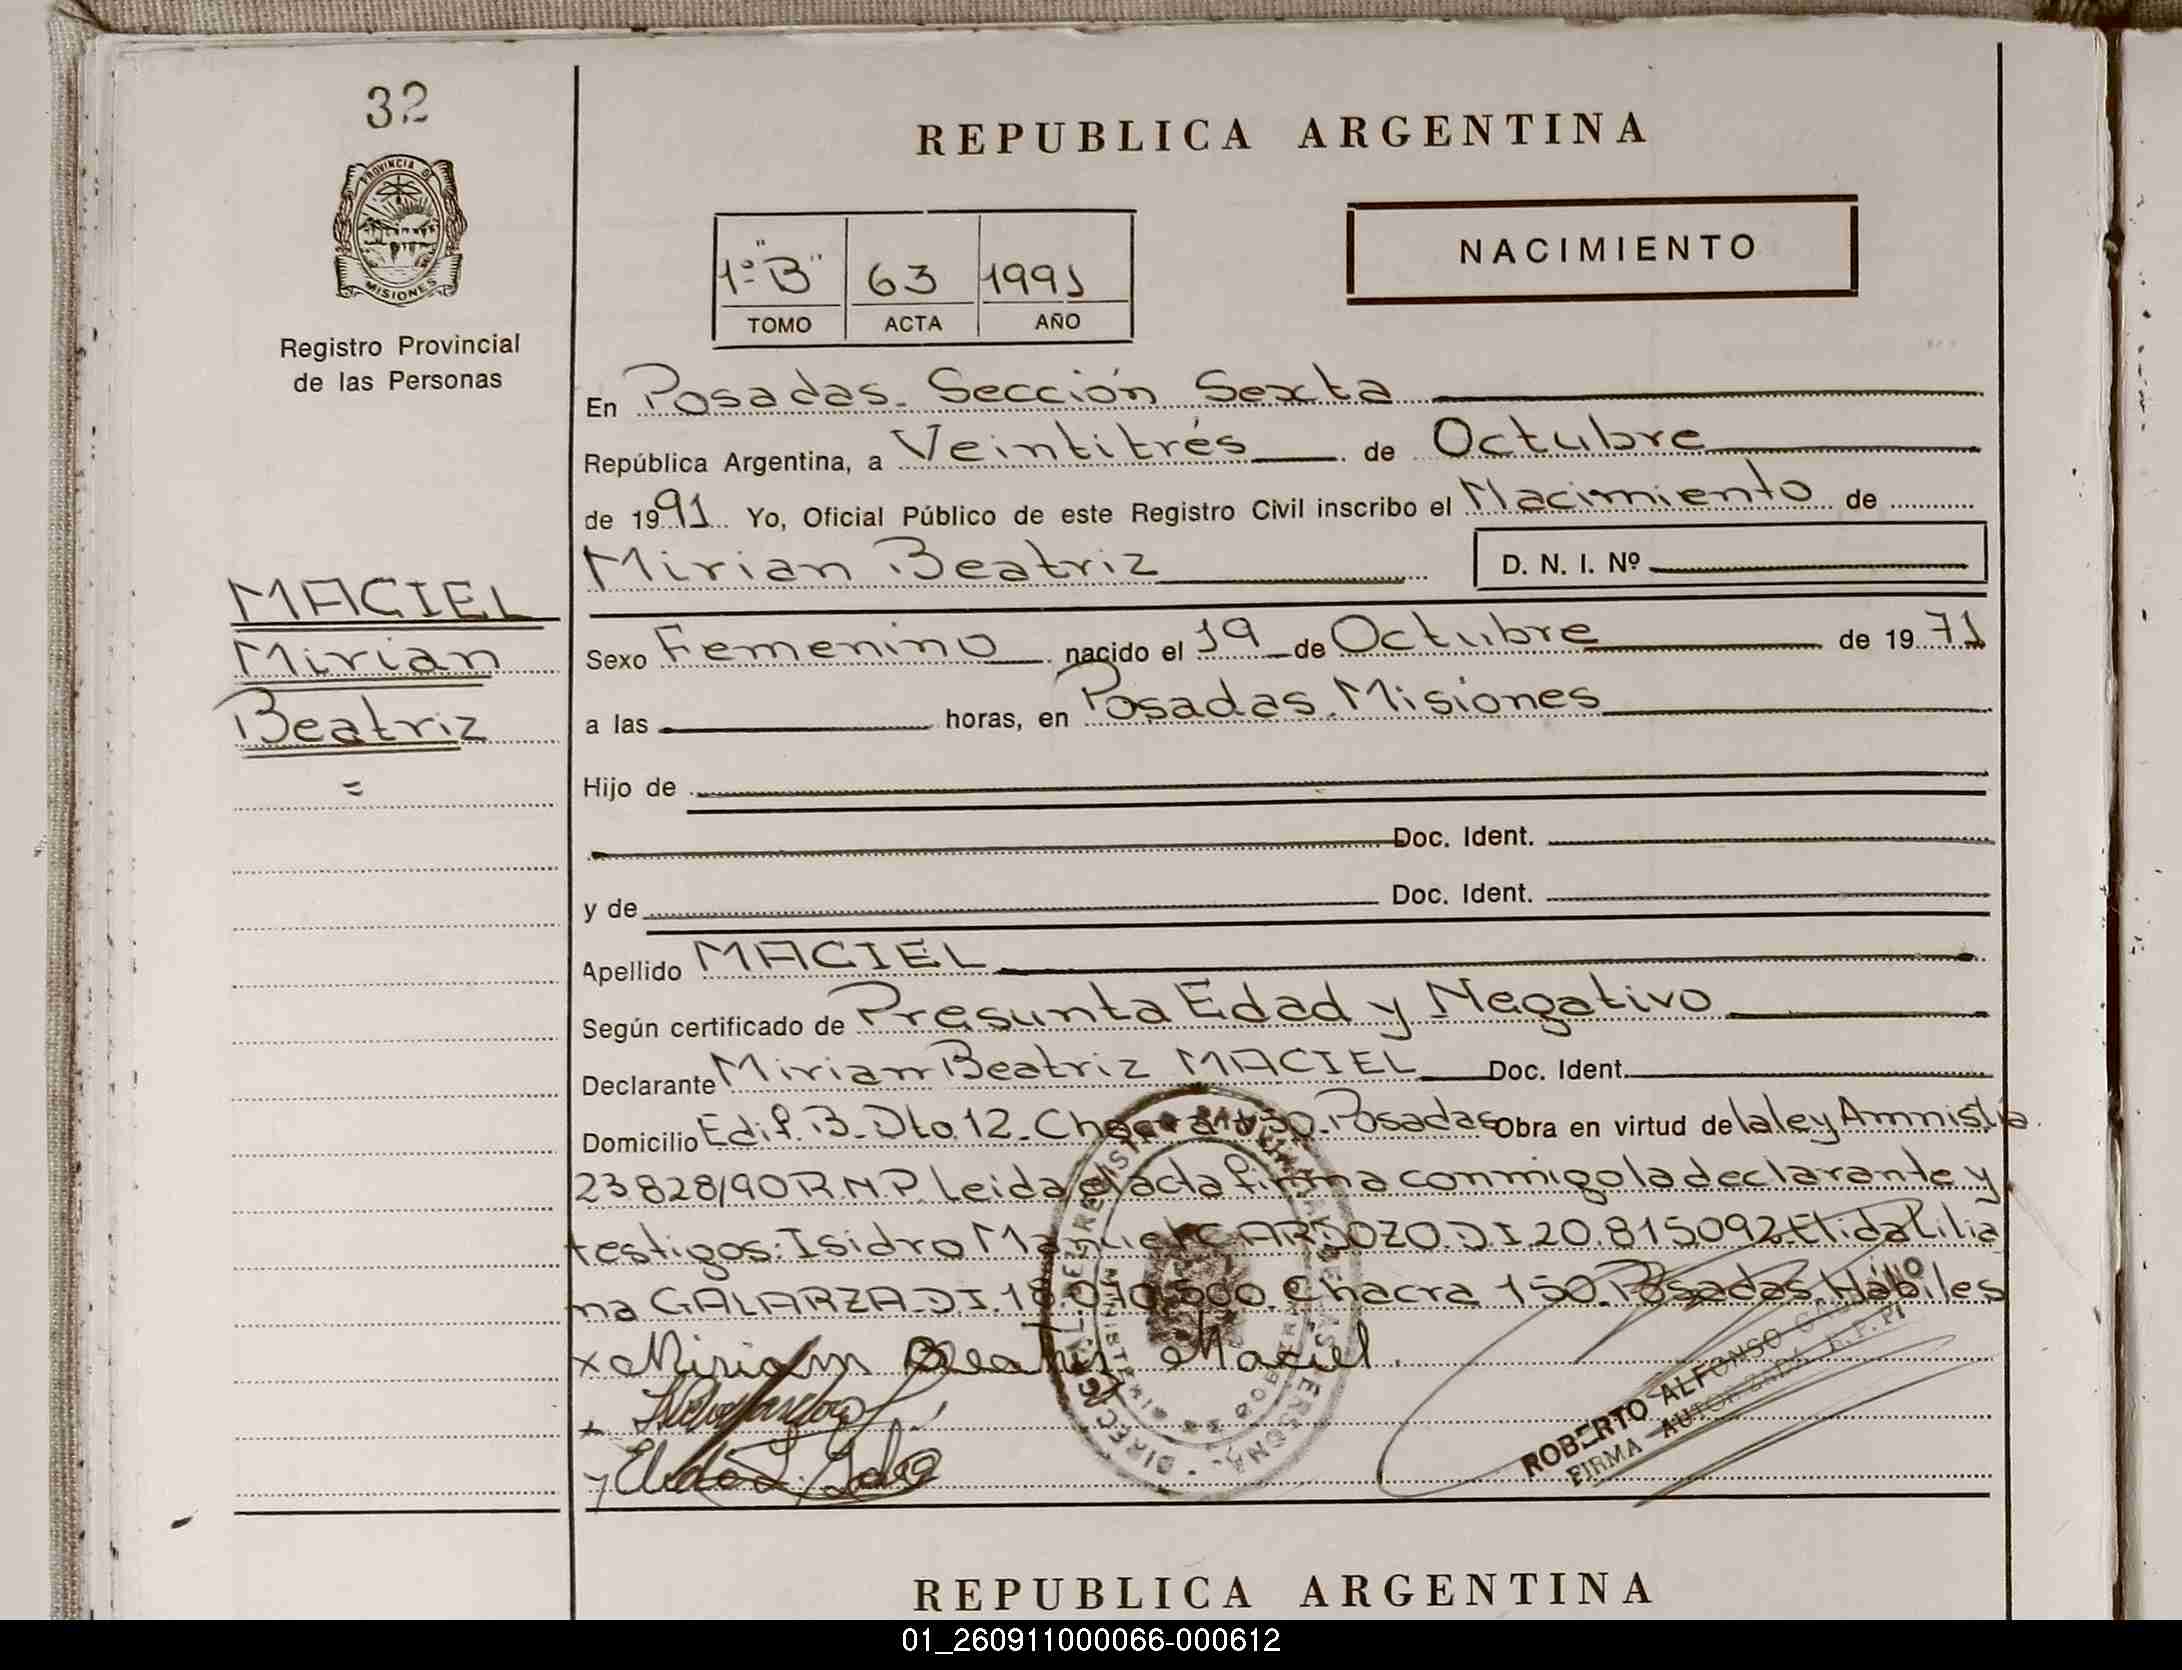 32
PROVINCIA D
MISIONES
Registro Provincial
de las Personas
MACIEL
Mirian
Beatriz
=
REPUBLICA ARGENTINA
1º "B" 63 1991
TOMO ACTA AÑO
NACIMIENTO
En Posadas. Sección Sexta
República Argentina, a Veintitrés de Octubre
de 1991 Yo, Oficial Público de este Registro Civil inscribo el Nacimiento de
Mirian Beatriz D. N. I. Nº
Sexo Femenino nacido el 19 de Octubre de 1971
a las horas, en Posadas. Misiones
Hijo de
Doc. Ident.
y de Doc. Ident.
Apellido MACIEL
Según certificado de Presunta Edad y Negativo
Declarante Mirian Beatriz MACIEL Doc. Ident.
Domicilio Edif. B. Dto. 12. Chacra 150. Posadas Obra en virtud de la ley Amnistía
23828/90 R.N.P. Leida el acta firma conmigo la declarante y
testigos: Isidro Manuel CARDOZO. D.I. 20.815092 Elida Lilia
na GALARZA. D.I. 18. Chacra 150. Posadas. Hábiles
x Miriam Beatriz Maciel
ROBERTO ALFONSO
FIRMA AUTORIZADA R.P.P.
REPUBLICA ARGENTINA
01_260911000066-000612